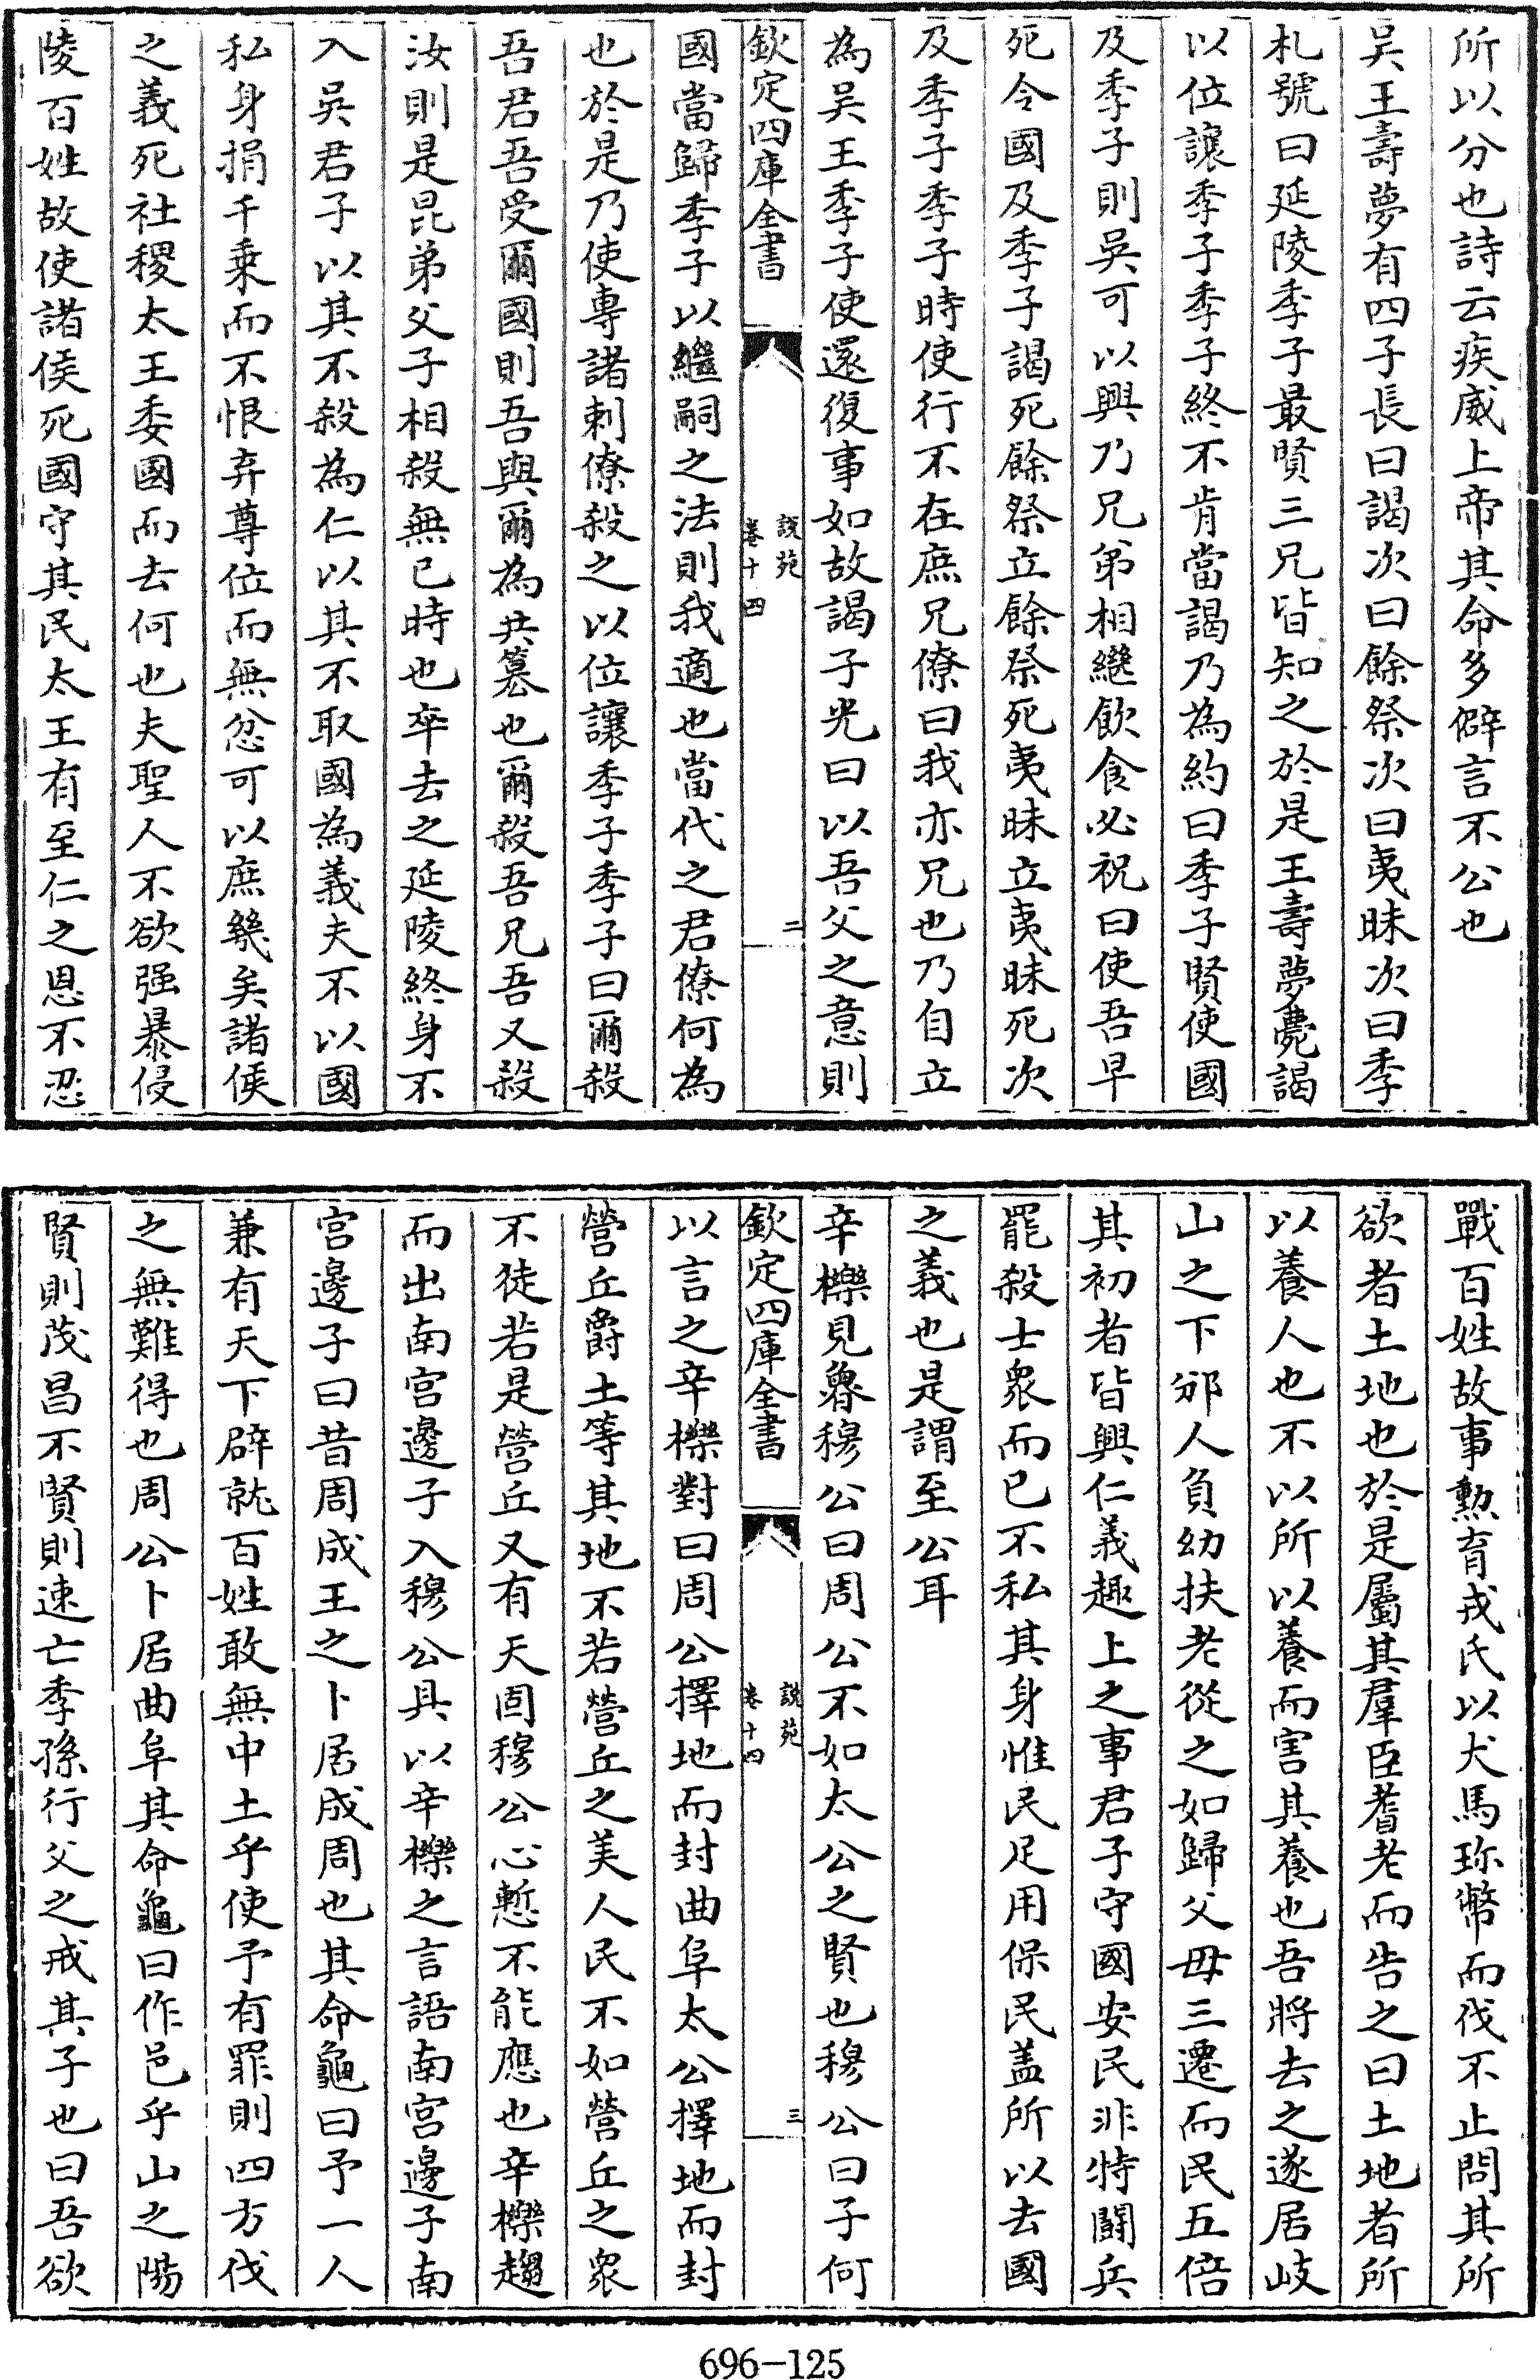 所以分也詩云疾威上帝其命多僻言不公也
吳王壽夢有四子長曰謁次曰餘祭次曰夷昧次曰季
札號曰延陵季子最賢三兄皆知之於是王壽夢薨謁
以位讓季子季子終不肯當謁乃為約曰季子賢使國
及季子則吳可以興乃兄弟相繼飲食必祝曰使吾早
死令國及季子謁死餘祭立餘祭死夷昧立夷昧死次
及季子季子時使行不在庶兄僚曰我亦兄也乃自立
為吳王季子使還復事如故謁子光曰以吾父之意則
欽定四庫全書
說苑
卷十四
二
國當歸季子以繼嗣之法則我適也當代之君僚何為
也於是乃使專諸刺僚殺之以位讓季子季子曰爾殺
吾君吾受爾國則吾與爾為共篡也爾殺吾兄吾又殺
汝則是昆弟父子相殺無已時也卒去之延陵終身不
入吳君子以其不殺為仁以其不取國為義夫不以國
私身捐千乘而不恨弃尊位而無忿可以庶幾矣諸侯
之義死社稷太王委國而去何也夫聖人不欲强暴侵
陵百姓故使諸侯死國守其民太王有至仁之恩不忍
戰百姓故事勲育戎氏以犬馬珍幣而伐不止問其所
欲者土地也於是屬其羣臣耆老而告之曰土地者所
以養人也不以所以養而害其養也吾將去之遂居岐
山之下邠人負幼扶老從之如歸父母三遷而民五倍
其初者皆興仁義趣上之事君子守國安民非特鬭兵
罷殺士衆而已不私其身惟民足用保民盖所以去國
之義也是謂至公耳
辛櫟見魯穆公曰周公不如太公之賢也穆公曰子何
欽定四庫全書
說苑
卷十四
三
以言之辛櫟對曰周公擇地而封曲阜太公擇地而封
營丘爵土等其地不若營丘之美人民不如營丘之衆
不徒若是營丘又有天固穆公心慙不能應也辛櫟趨
而出南宫邊子入穆公具以辛櫟之言語南宫邊子南
宫邊子曰昔周成王之卜居成周也其命龜曰予一人
兼有天下辟就百姓敢無中土乎使予有罪則四方伐
之無難得也周公卜居曲阜其命龜曰作邑乎山之陽
賢則茂昌不賢則速亡季孫行父之戒其子也曰吾欲
696-125